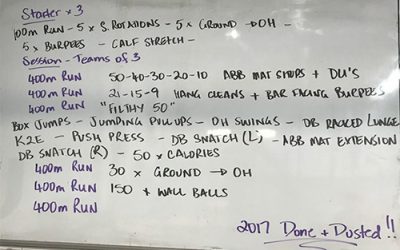 Starter x 3
100m RUN - 5 x S. ROTATIONS - 5 x GROUND → OH -
5 x BURPEES - CALF STRETCH -
Session - Teams of 3
400m RUN 50-40-30-20-10 ABB MAT SITUPS + DU'S
400m RUN 21-15-9 HANG CLEANS + BAR FACING BURPEES
400m RUN "FILTHY 50"
BOX JUMPS - JUMPING PULLUPS - OH SWINGS - DB RACKED LUNGE
K2E - PUSH PRESS - DB SNATCH (L) - ABB MAT EXTENSION
DB SNATCH (R) - 50 x CALORIES
400m RUN 30 x GROUND → OH
400m RUN 150 x WALL BALLS
400m RUN
2017 Done + Dusted !!